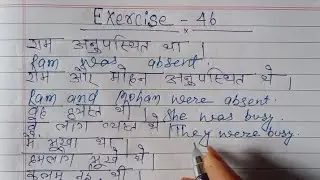 Exercise - 4b
राम अनुपस्थित था ।
Ram was absent.
राम और मोहन अनुपस्थित थे ।
Ram and Mohan were absent.
वह व्यस्त था । She was busy.
लोग व्यस्त थे । They were busy.
मैं भूखा था ।
हमलोग भूखे थे ।